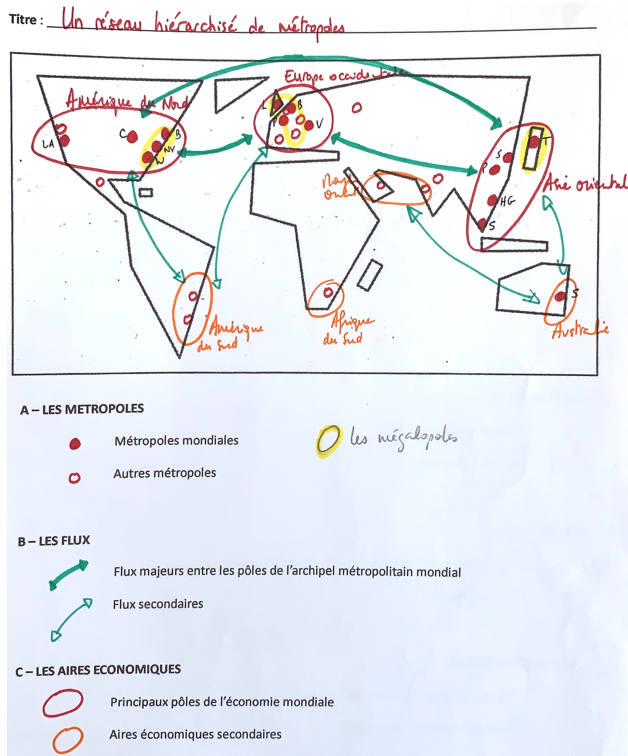 Titre : Un réseau hiérarchisé de métropoles
Europe occidentale
Amérique du Nord
L B
P V
LA C B
NY
W
T
S
P
Moyen
orient
Asie orientale
HG
S
S
Amérique
du Sud
Afrique
du Sud
Australie
A – LES METROPOLES
Métropoles mondiales
les mégalopoles
Autres métropoles
B – LES FLUX
Flux majeurs entre les pôles de l'archipel métropolitain mondial
Flux secondaires
C – LES AIRES ECONOMIQUES
Principaux pôles de l'économie mondiale
Aires économiques secondaires